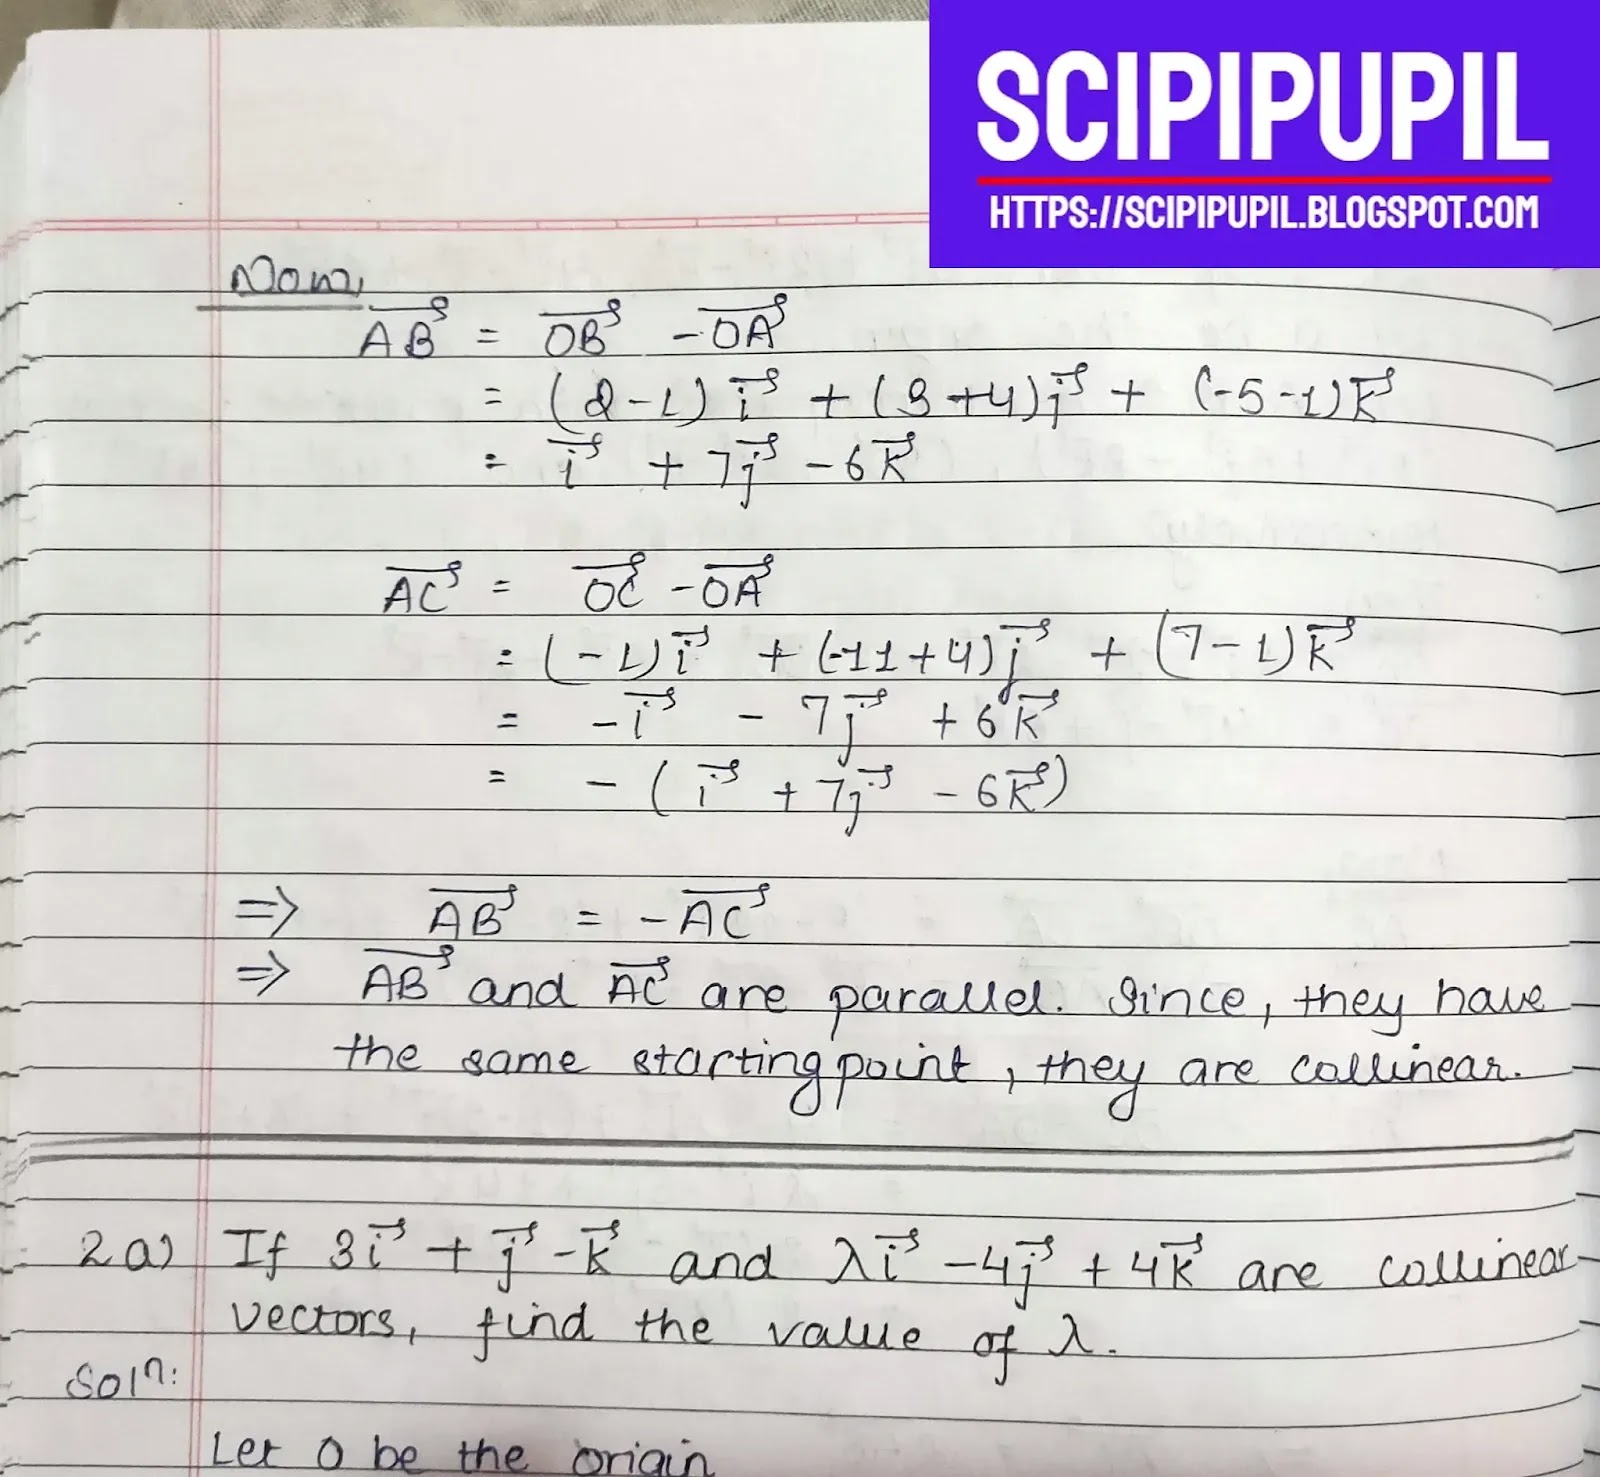 SCIPIPUPIL
HTTPS://SCIPIPUPIL.BLOGSPOT.COM
Now,
AB⃗ = OB⃗ - OA⃗
= (2-1) i⃗ + (3+4) j⃗ + (-5-1) k⃗
= i⃗ + 7j⃗ - 6k⃗
AC⃗ = OC⃗ - OA⃗
= (-1) i⃗ + (-11+4) j⃗ + (7-1) k⃗
= -i⃗ - 7j⃗ + 6k⃗
= - (i⃗ + 7j⃗ - 6k⃗)
=> AB⃗ = -AC⃗
=> AB⃗ and AC⃗ are parallel. Since, they have
the same starting point, they are collinear.
2a) If 3i⃗ + j⃗ - k⃗ and λi⃗ - 4j⃗ + 4k⃗ are collinear
vectors, find the value of λ.
Solⁿ:
Let O be the origin